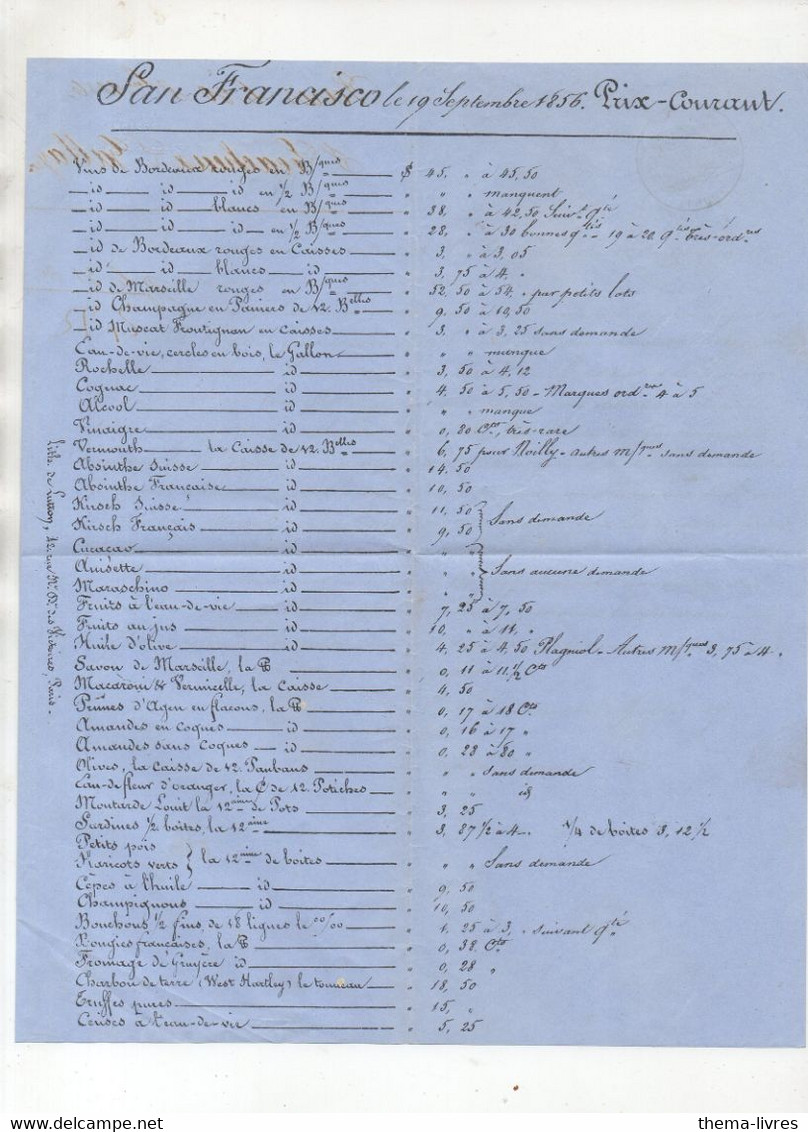 San Francisco le 19 Septembre 1856. Prix-Courant.
Vins de Bordeaux rouges en B/ques $ 45, " à 45,50
— id — id — id en 1/2 B/ques " " " manquent
— id — id — blancs en B/ques " 38, " à 42,50 Suivt qté
— id — id — id — en 1/2 B/ques " 28, " à 30 bonnes qtés 19 à 20 qtés très-ordres
— id de Bordeaux rouges en Caisses " 3, " à 3,05
— id — id — blancs — id " 3, 75 à 4 "
— id de Marseille rouges en B/ques " 52, 50 à 54 " pur petits lots
— id Champagne en Paniers de 12 Belles " 9, 50 à 10,50
— id Muscat Frontignan en caisses " 3, " à 3,25 sans demande
Eau-de-vie, cercles en bois, le Gallon " " " manque
Rochelle — id " 3, 50 à 4,12
Cognac — id " 4, 50 à 5,50 - Marques ordres 4 à 5
Alcool — id " " " manque
Vinaigre — id " 0, 20 Cts, très-rare
Vermouth — la Caisse de 12 Belles " 6, 75 pour Noilly - autres m/ques sans demande
Absinthe Suisse — id " 14, 50
Absinthe Française — id " 10, 50
Kirsch Suisse — id " 11, 50
Kirsch Français — id " 9, 50 } Sans demande
Curaçao — id " " "
Anisette — id " " " } Sans aucune demande
Maraschino — id " " "
Fruits à l'eau-de-vie — id " 7, 25 à 7,50
Fruits au jus — id " 10, " à 11, "
Huile d'olive — id " 4, 25 à 4,50 Plagniol - Autres m/ques 3,75 à 4 "
Savon de Marseille, la ℔ " 0, 11 à 11 1/2 Cts
Macaroni & Vermicelle, la caisse " 4, 50
Prunes d'Agen en flacons, la ℔ " 0, 17 à 18 Cts
Amandes en coques — id " 0, 16 à 17 "
Amandes sans coques — id " 0, 28 à 30 "
Olives, la caisse de 12 Paubans " " " sans demande
Eau-de fleur d'oranger, la C de 12 Potiches " " " id
Moutarde Louit la 12aine de Pots " 3, 25
Sardines 1/2 boîtes, la 12aine " 3, 87 1/2 à 4 - 1/4 de boîtes 3,12 1/2
Petits pois
Haricots verts } la 12aine de boîtes " " " Sans demande
Cèpes à l'huile — id " 9, 50
Champignons — id " 10, 50
Bouchons 1/2 fins, de 18 lignes le %00 " 1, 25 à 3, " suivant qté
Bougies françaises, la ℔ " 0, 38 Cts
Fromage de Gruyère id " 0, 28 "
Charbon de terre (West Hartley) le tonneau " 18, 50
Truffes pures " 15, "
Cerises à l'eau-de-vie " 5, 25
Lith. de Lutton, 12, rue N. D. des Victoires, Paris.
www.delcampe.net
thema-livres